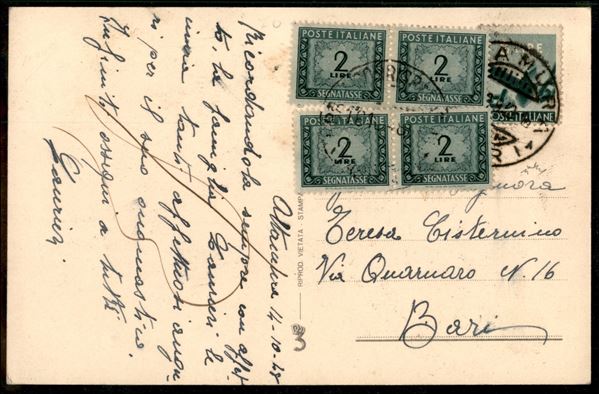 POSTE ITALIANE
2
LIRE
SEGNATASSE
POSTE ITALIANE
2
LIRE
SEGNATASSE
POSTE ITALIANE
2
LIRE
SEGNATASSE
POSTE ITALIANE
2
LIRE
SEGNATASSE
LIRE
POSTE ITALIANE
Altamura 14-10-48
Ricordandola sempre con affet
to, la famiglia Laurieri le
invia tanti affettuosi augu
ri per il suo onomastico.
Infiniti ossequi a tutti
Laurieri
RIPROD. VIETATA STAMPA
3
Signora
Teresa Cisternino
Via Quarnaro N. 16
Bari